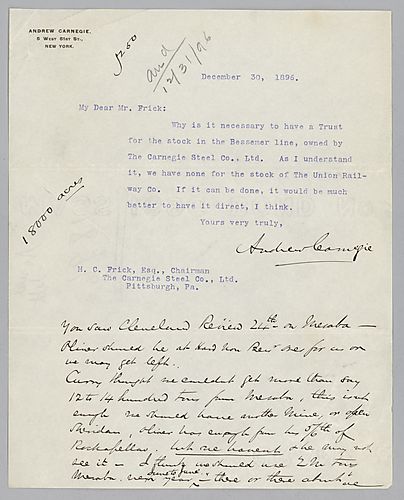 ANDREW CARNEGIE.
5 WEST 51ST ST.,
NEW YORK.
and
12/31/96
December 30, 1896.
My Dear Mr. Frick:
Why is it necessary to have a Trust
for the stock in the Bessemer line, owned by
The Carnegie Steel Co., Ltd. As I understand
it, we have none for the stock of The Union Rail-
way Co. If it can be done, it would be much
better to have it direct, I think.
Yours very truly,
18000 acres
Andrew Carnegie
H. C. Frick, Esq., Chairman
The Carnegie Steel Co., Ltd.
Pittsburgh, Pa.
You saw Cleveland Review 24th on Mesaba —
Oliver should be at hard now ores for us or
we may get left.
Curry thought we couldn't get more than say
12 to 14 hundred tons from Mesaba, this isn't
enough we should have another Mine, or open
Sheridan, Oliver has enough for his 5/6th of
Rockafellas, but we haven't & he may not
see it — I think we should use 2 M tons
Mesaba next year, — three or these